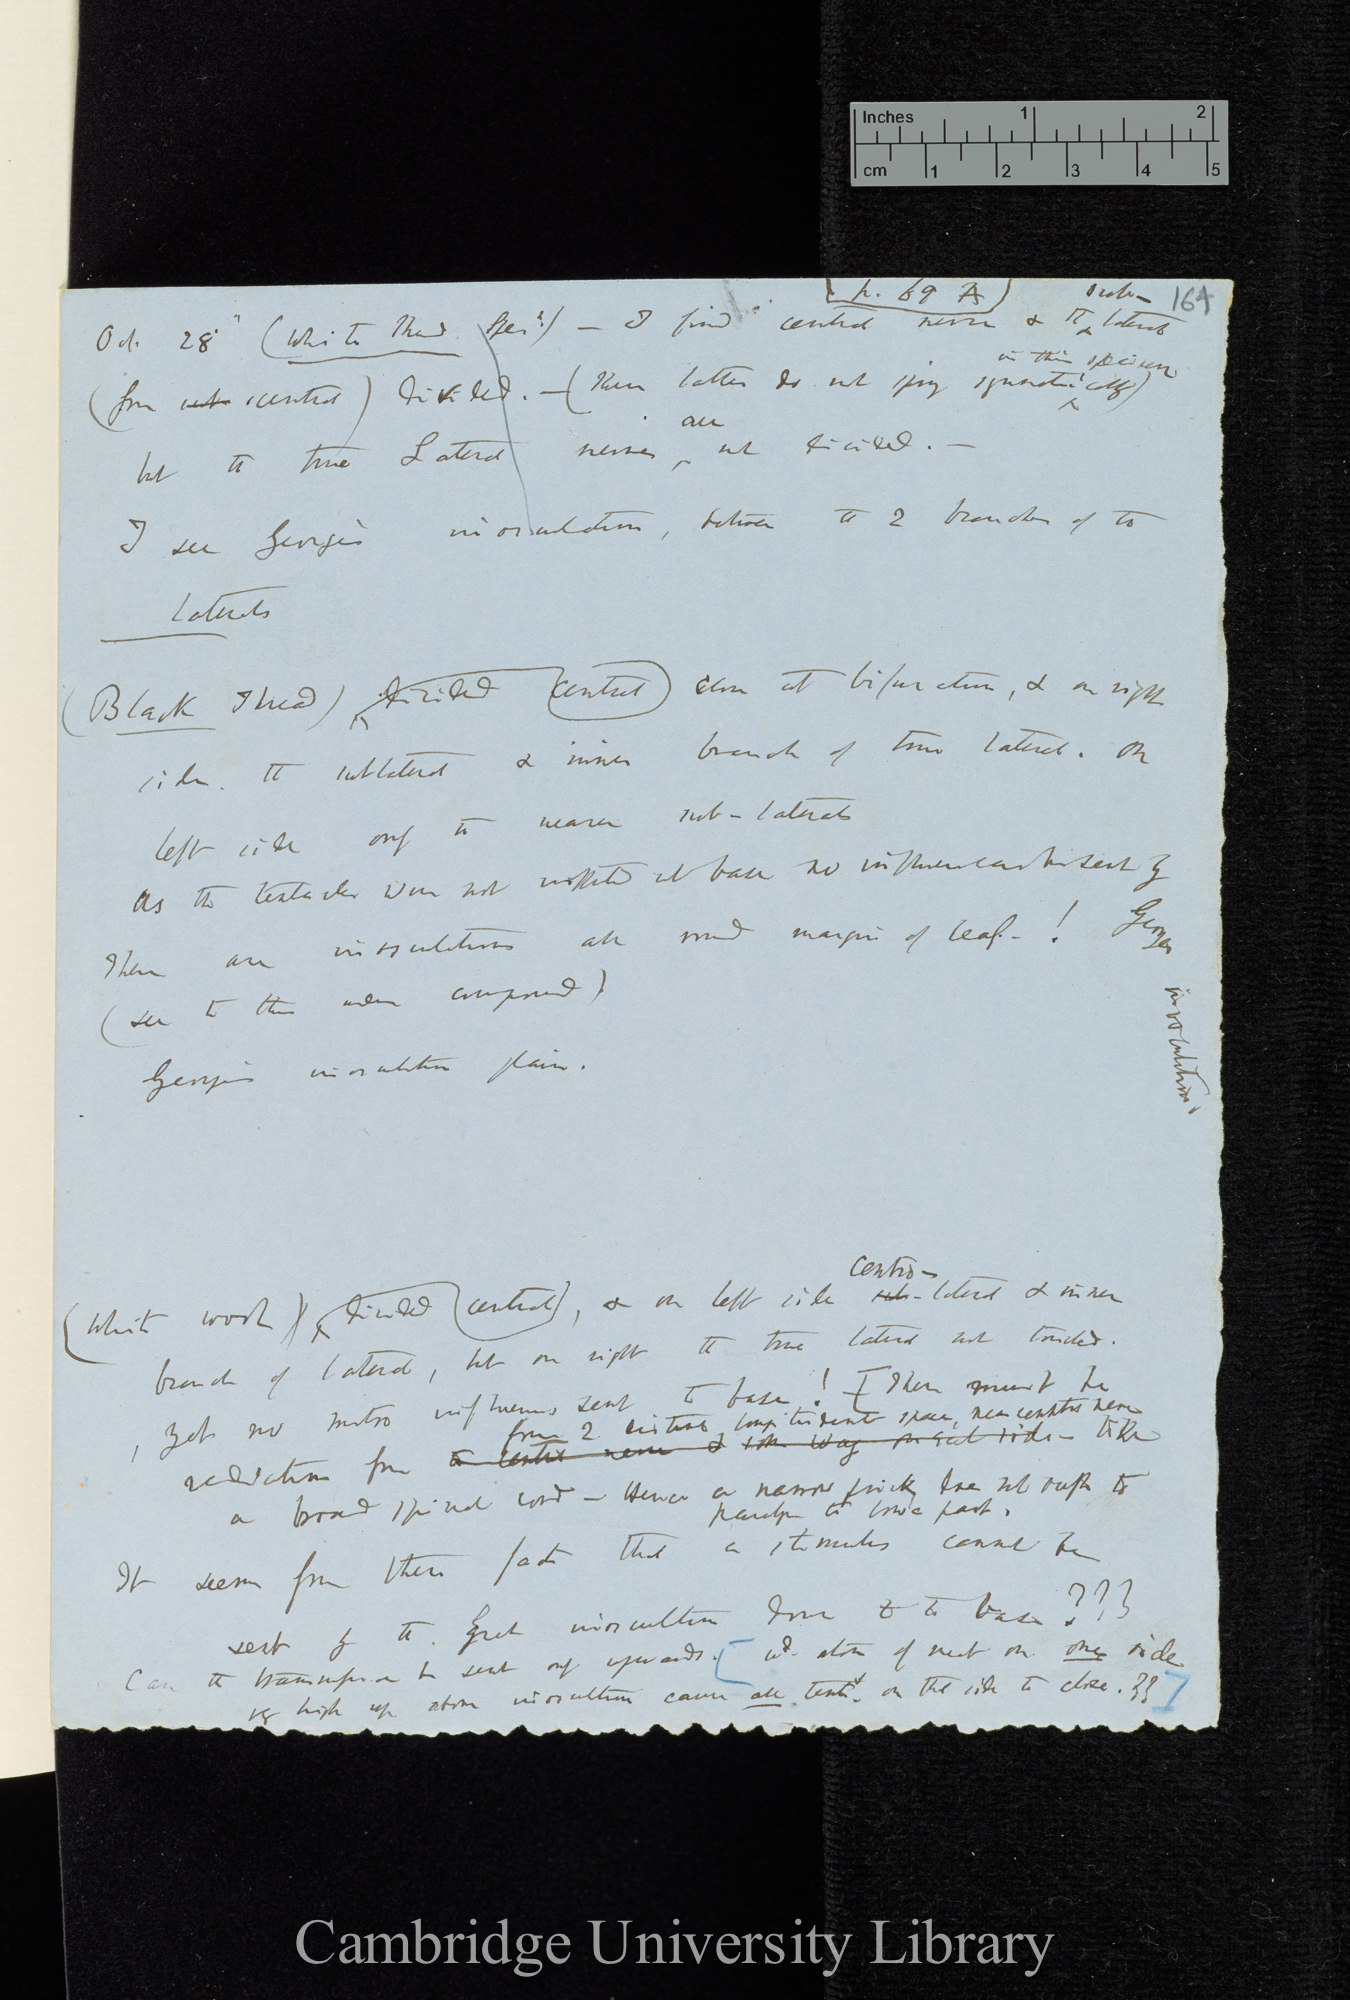 Inches 1 2
cm 1 2 3 4 5
(p. 69 A)
164
Oct. 28" (White Thread Spec.) — I find central nerve & the sub-laterals
(from central) divided. — (These latter do not spring symmetrically in this specimen)
but the true Lateral nerves are not divided. —
I see George's inosculation, between the 2 branches of the
laterals
(Black Thread) divided (central) close at bifurcation, & on right
side the sublateral & inner branch of true lateral. On
left side only the nearer sub-laterals
As the tentacles were not inflected at base no influence can be sent by
George's inosculations.
There are inosculations all round margin of leaf — !
(see to this when compound)
George's inosculation plain.
(White wool) divided (central), & on left side centro-lateral & inner
branch of lateral, but on right the true lateral not touched.
, yet no motor influence sent to base! [There must be
radiation from 2 distinct longitudinal space, near central nerve
the central nerve & some way on each side — like
a broad spinal cord — Hence a narrow prick does not suffice to
paralyse the lower part.
It seems from these facts that a stimulus cannot be
sent by the great inosculation down to the base ???
Can the transmission be sent only upwards. [wd. atom of meat on one side
vy high up above inosculation cause all tent. on the side to close.??]
Cambridge University Library